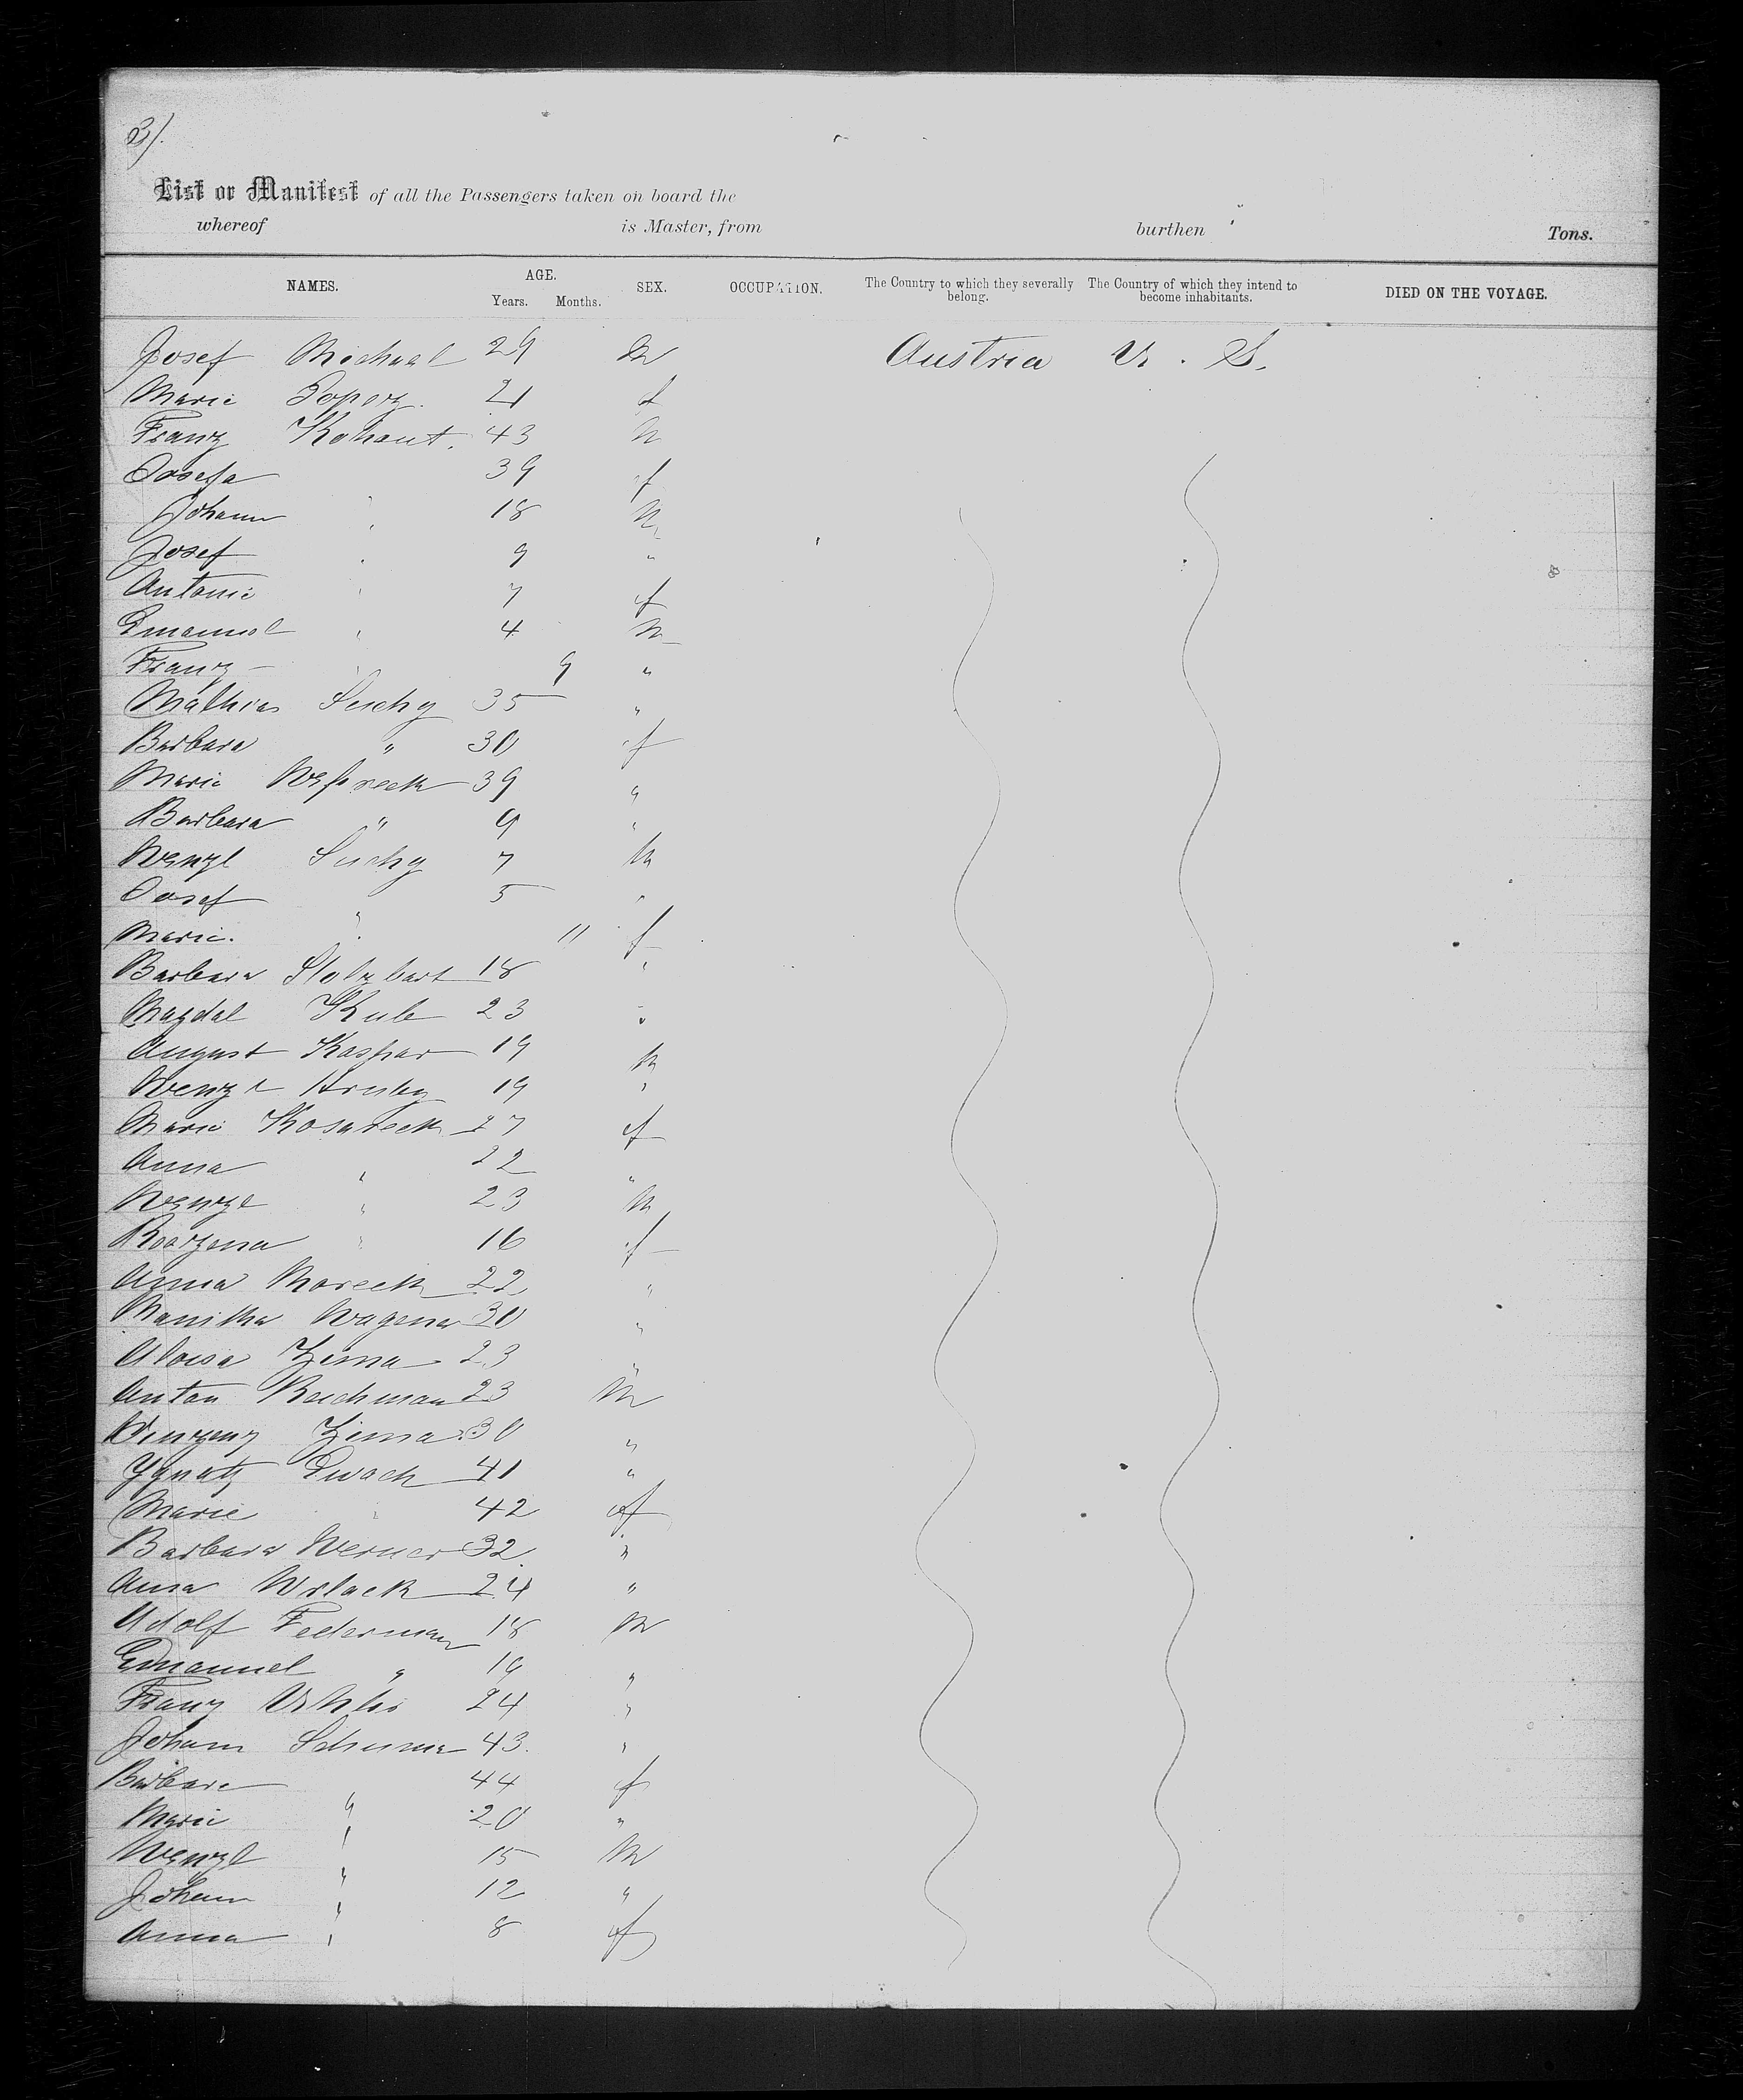 3/.
List or Manifest of all the Passengers taken on board the
whereof is Master, from burthen Tons.
NAMES. AGE. Years. Months. SEX. OCCUPATION. The Country to which they severally belong. The Country of which they intend to become inhabitants. DIED ON THE VOYAGE.
Josef Michael 29 M Austria U. S.
Marie 21 f
Franz Kohout. 43 M
Josefa 39 f
Johann " 18 M
Josef " 9 "
Antonie " 7 f
Emanuel " 4 M
Franz " 9 "
Mathias Suchy 35 "
Barbara " 30 f
Marie 39 "
Barbara " 9 "
Wenzl Suchy 7 M
Josef " 5 "
Marie. " 11 f
Barbara 18 "
Magdal Kub 23 "
August Kaspar 19 M
Wenzl Hruby 19 "
Marie Kosareck 27 f
Anna " 22 "
Wenzl " 23 M
" 16 f
Anna Mareck 22 "
Wagena 30 "
Aloisa Zima 23 "
Anton Reichman 23 M
Vinzenz Zima 30 "
Ygnatz 41 "
Marie " 42 f
Barbara Werner 32 "
Anna 24 "
Adolf Federman 18 M
Emanuel " 19 "
Franz 24 "
Johann 43. "
Barbara " 44 f
Marie " 20 "
Wenzl " 15 M
Johann " 12 "
Anna " 8 f